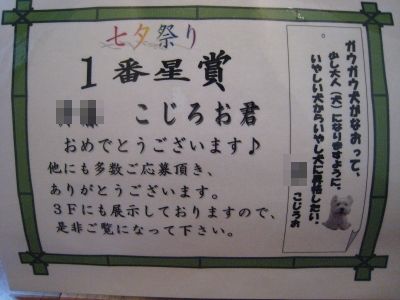 七夕祭り
1番星賞
こじろお君
おめでとうございます♪
他にも多数ご応募頂き、
ありがとうございます。
3Fにも展示しておりますので、
是非ご覧になって下さい。
ガウガウ犬がなおって、
少し大人(犬)になりますように。
いやしい犬からいやし犬に昇格したい。
こじろお